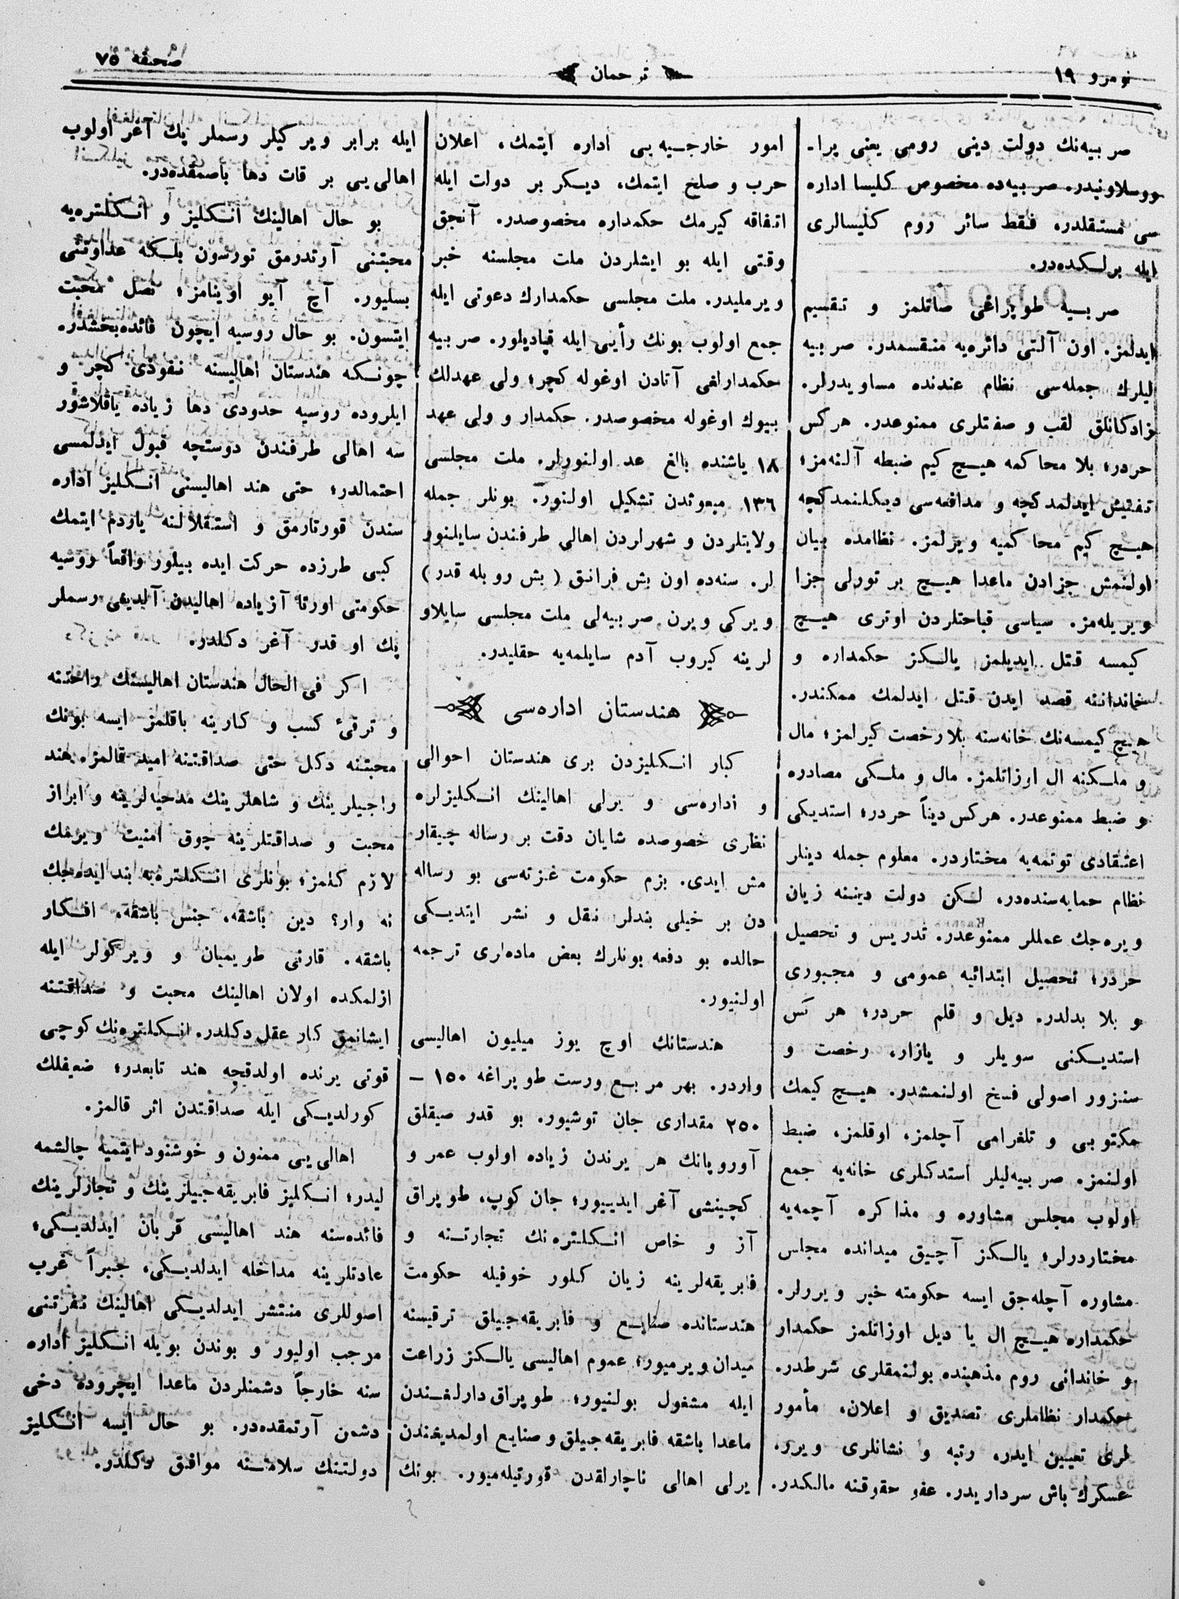 نومرو ١٩
ترجمان
صحيفه ٧٥
صربيه‌نك دولت دينى رومى يعنى پرا-
ووسلاونيدر. صربيه‌ده مخصوص كليسا اداره
سى مستقلدر، فقط سائر روم كليسالرى
ايله برلكده‌در.
صربيه طوپراغى صاتلمز و تقسيم
ايدلمز. اون آلتى دائره‌يه منقسمدر. صربيه
ليلرك جمله‌سى نظام عندنده مساويدرلر.
زادكانلق لقب و صفتلرى ممنوعدر. هركس
حردر؛ بلا محاكمه هيچ كيم ضبطه آلنه‌مز؛
تفتيش ايدلمدكچه و مدافعه‌سى ديكلنمدكچه
هيچ كيم محاكميه ويرلمز. نظامده بيان
اولنمش جزادن ماعدا هيچ بر تورلى جزا
ويريله‌مز. سياسى قباحتلردن اوترى هيچ
كيمسه قتل ايديلمز يالكز حكمداره و
خانداننه قصد ايدن قتل ايدلمك ممكندر.
هيچ كيمسه‌نك خانه‌سنه بلا رخصت كيرلمز؛ مال
و ملكنه ال اوزاتلمز. مال و ملكى مصادره
و ضبط ممنوعدر. هركس ديناً حردر؛ استديكى
اعتقادى توتمه‌يه مختاردر. معلوم جمله دينلر
نظام حمايه‌سنده‌در، لكن دولت ديننه زيان
ويره‌جك عمللر ممنوعدر. تدريس و تحصيل
حردر؛ تحصيل ابتدائيه عمومى و مجبورى
و بلا بدلدر. ديل و قلم حردر؛ هر كس
استديكنى سويلر و يازار، رخصت و
سنزور اصولى فسخ اولنمشدر. هيچ كيمك
مكتوبى و تلغرامى آچلمز، اوقلمز، ضبط
اولنمز. صربيه‌ليلر استدكلرى خانه‌يه جمع
اولوب مجلس مشاوره و مذاكره آچمه‌يه
مختاردرلر؛ يالكز آچيق ميدانده مجلس
مشاوره آچله‌جق ايسه حكومته خبر ويررلر.
حكمداره هيچ ال يا ديل اوزاتلمز حكمدار
و خاندانى روم مذهبنده بولنمقلرى شرطدر.
حكمدار نظاملرى تصديق و اعلان، مأمور
لرى تعيين ايدر، رتبه و نشانلرى ويرر،
عسكرك باش سرداريدر. عفو حقوقنه مالكدر.
امور خارجيه‌يى اداره ايتمك، اعلان
حرب و صلح ايتمك، ديكر بر دولت ايله
اتفاقه كيرمك حكمداره مخصوصدر. آنجق
وقتى ايله بو ايشلردن ملت مجلسنه خبر
ويرمليدر. ملت مجلسى حكمدارك دعوتى ايله
جمع اولوب بونك رأيى ايله قپاديلور. صربيه
حكمدارلغى آتادن اوغوله كچر؛ ولى عهدلك
بيوك اوغوله مخصوصدر. حكمدار و ولى عهد
١٨ ياشنده بالغ عد اولنورلر. ملت مجلسى
١٣٦ مبعوثدن تشكيل اولنور. بونلر جمله
ولايتلردن و شهرلردن اهالى طرفندن سايلنور
لر. سنه‌ده اون بش فرانق (بش روبله قدر)
ويركى ويرن صربيه‌لى ملت مجلسى سايلاو
لرينه كيروب آدم سايلمه‌يه حقليدر.
هندستان اداره‌سى
كبار انكليزدن برى هندستان احوالى
و اداره‌سى و يرلى اهالينك انكليزلره
نظرى خصوصده شايان دقت بر رساله چيقار
مش ايدى. بزم حكومت غزته‌سى بو رساله
دن بر خيلى بندلر نقل و نشر ايتديكى
حالده بو دفعه بونلرك بعض ماده‌لرى ترجمه
اولنيور.
هندستانك اوچ يوز ميليون اهاليسى
واردر. بهر مربع ورست طوپراغه ١٥٠ —
٢٥٠ مقدارى جان توشيور. بو قدر صيقلق
آوروپانك هر يرندن زياده اولوب عمر و
كچينشى آغر ايدييور؛ جان كوپ، طوپراق
آز و خاص انكلتره‌نك تجارتنه و
فابريقه‌لرينه زيان كلور خوفيله حكومت
هندستانده صنايع و فابريقه‌جيلق ترقيسنه
ميدان ويرميور؛ عموم اهاليسى يالكز زراعت
ايله مشغول بولنيور؛ طوپراق دارلغندن
ماعدا باشقه فابريقه‌جيلق و صنايع اولمديغندن
يرلى اهالى ناچارلقدن قورتيله‌ميور. بونك
ايله برابر ويركيلر رسملر پك آغر اولوب
اهالى‌يى بر قات دها باصمقده‌در.
بو حال اهالينك انكليز و انكلتره‌يه
محبتنى آرتدرمق تورسون بلكه عداوتنى
بسليور. آچ آيو اوينامز؛ نصل محبت
ايتسون. بو حال روسيه ايچون فائده‌بخشدر.
چونكه هندستان اهاليسنه نفوذى كچر و
ايلروده روسيه حدودى دها زياده ياقلاشور
سه اهالى طرفندن دوستجه قبول ايدلمسى
احتمالدر؛ حتى هند اهاليسنى انكليز اداره
سندن قورتارمق و استقلالنه ياردم ايتمك
كبى طرزده حركت ايده بيلور واقعاً روسيه
حكومتى اورتا آزياده اهاليدن آلديغى رسملر
پك او قدر آغر دكلدر.
اكر فى الحال هندستان اهاليسنك راحتنه
و ترقئ كسب و كارينه باقلمز ايسه بونك
محبتنه دكل حتى صداقتنه اميد قالمز. هند
راجيلرينك و شاهلرينك مدحيه‌لرينه و ابراز
محبت و صداقتلرينه چوق امنيت ويرمك
لازم كلمز؛ بونلرى انكلتره‌يه بند ايده‌جك
نه وار؟ دين باشقه، جنس باشقه، افكار
باشقه. قارنى طويميان و ويركولر ايله
ازلمكده اولان اهالينك محبت و صداقتنه
ايشانمق كار عقل دكلدر. انكلتره‌نك كوچى
قوتى يرنده اولدقچه هند تابعدر؛ ضعيفلك
كورلديكى ايله صداقتدن اثر قالمز.
اهالى‌يى ممنون و خوشنود ايتميه چالشمه
ليدر؛ انكليز فابريقه‌جيلرينك و تجارلرينك
فائده‌سنه هند اهاليسى قربان ايدلديكى؛
عادتلرينه مداخله ايدلديكى، جبراً غرب
اصوللرى منتشر ايدلديكى اهالينك نفرتنى
موجب اوليور و بوندن بويله انكليز اداره
سنه خارجاً دشمنلردن ماعدا ايچروده دخى
دشمن آرتمقده‌در. بو حال ايسه انكليز
دولتنك سلامتنه موافق دكلدر.